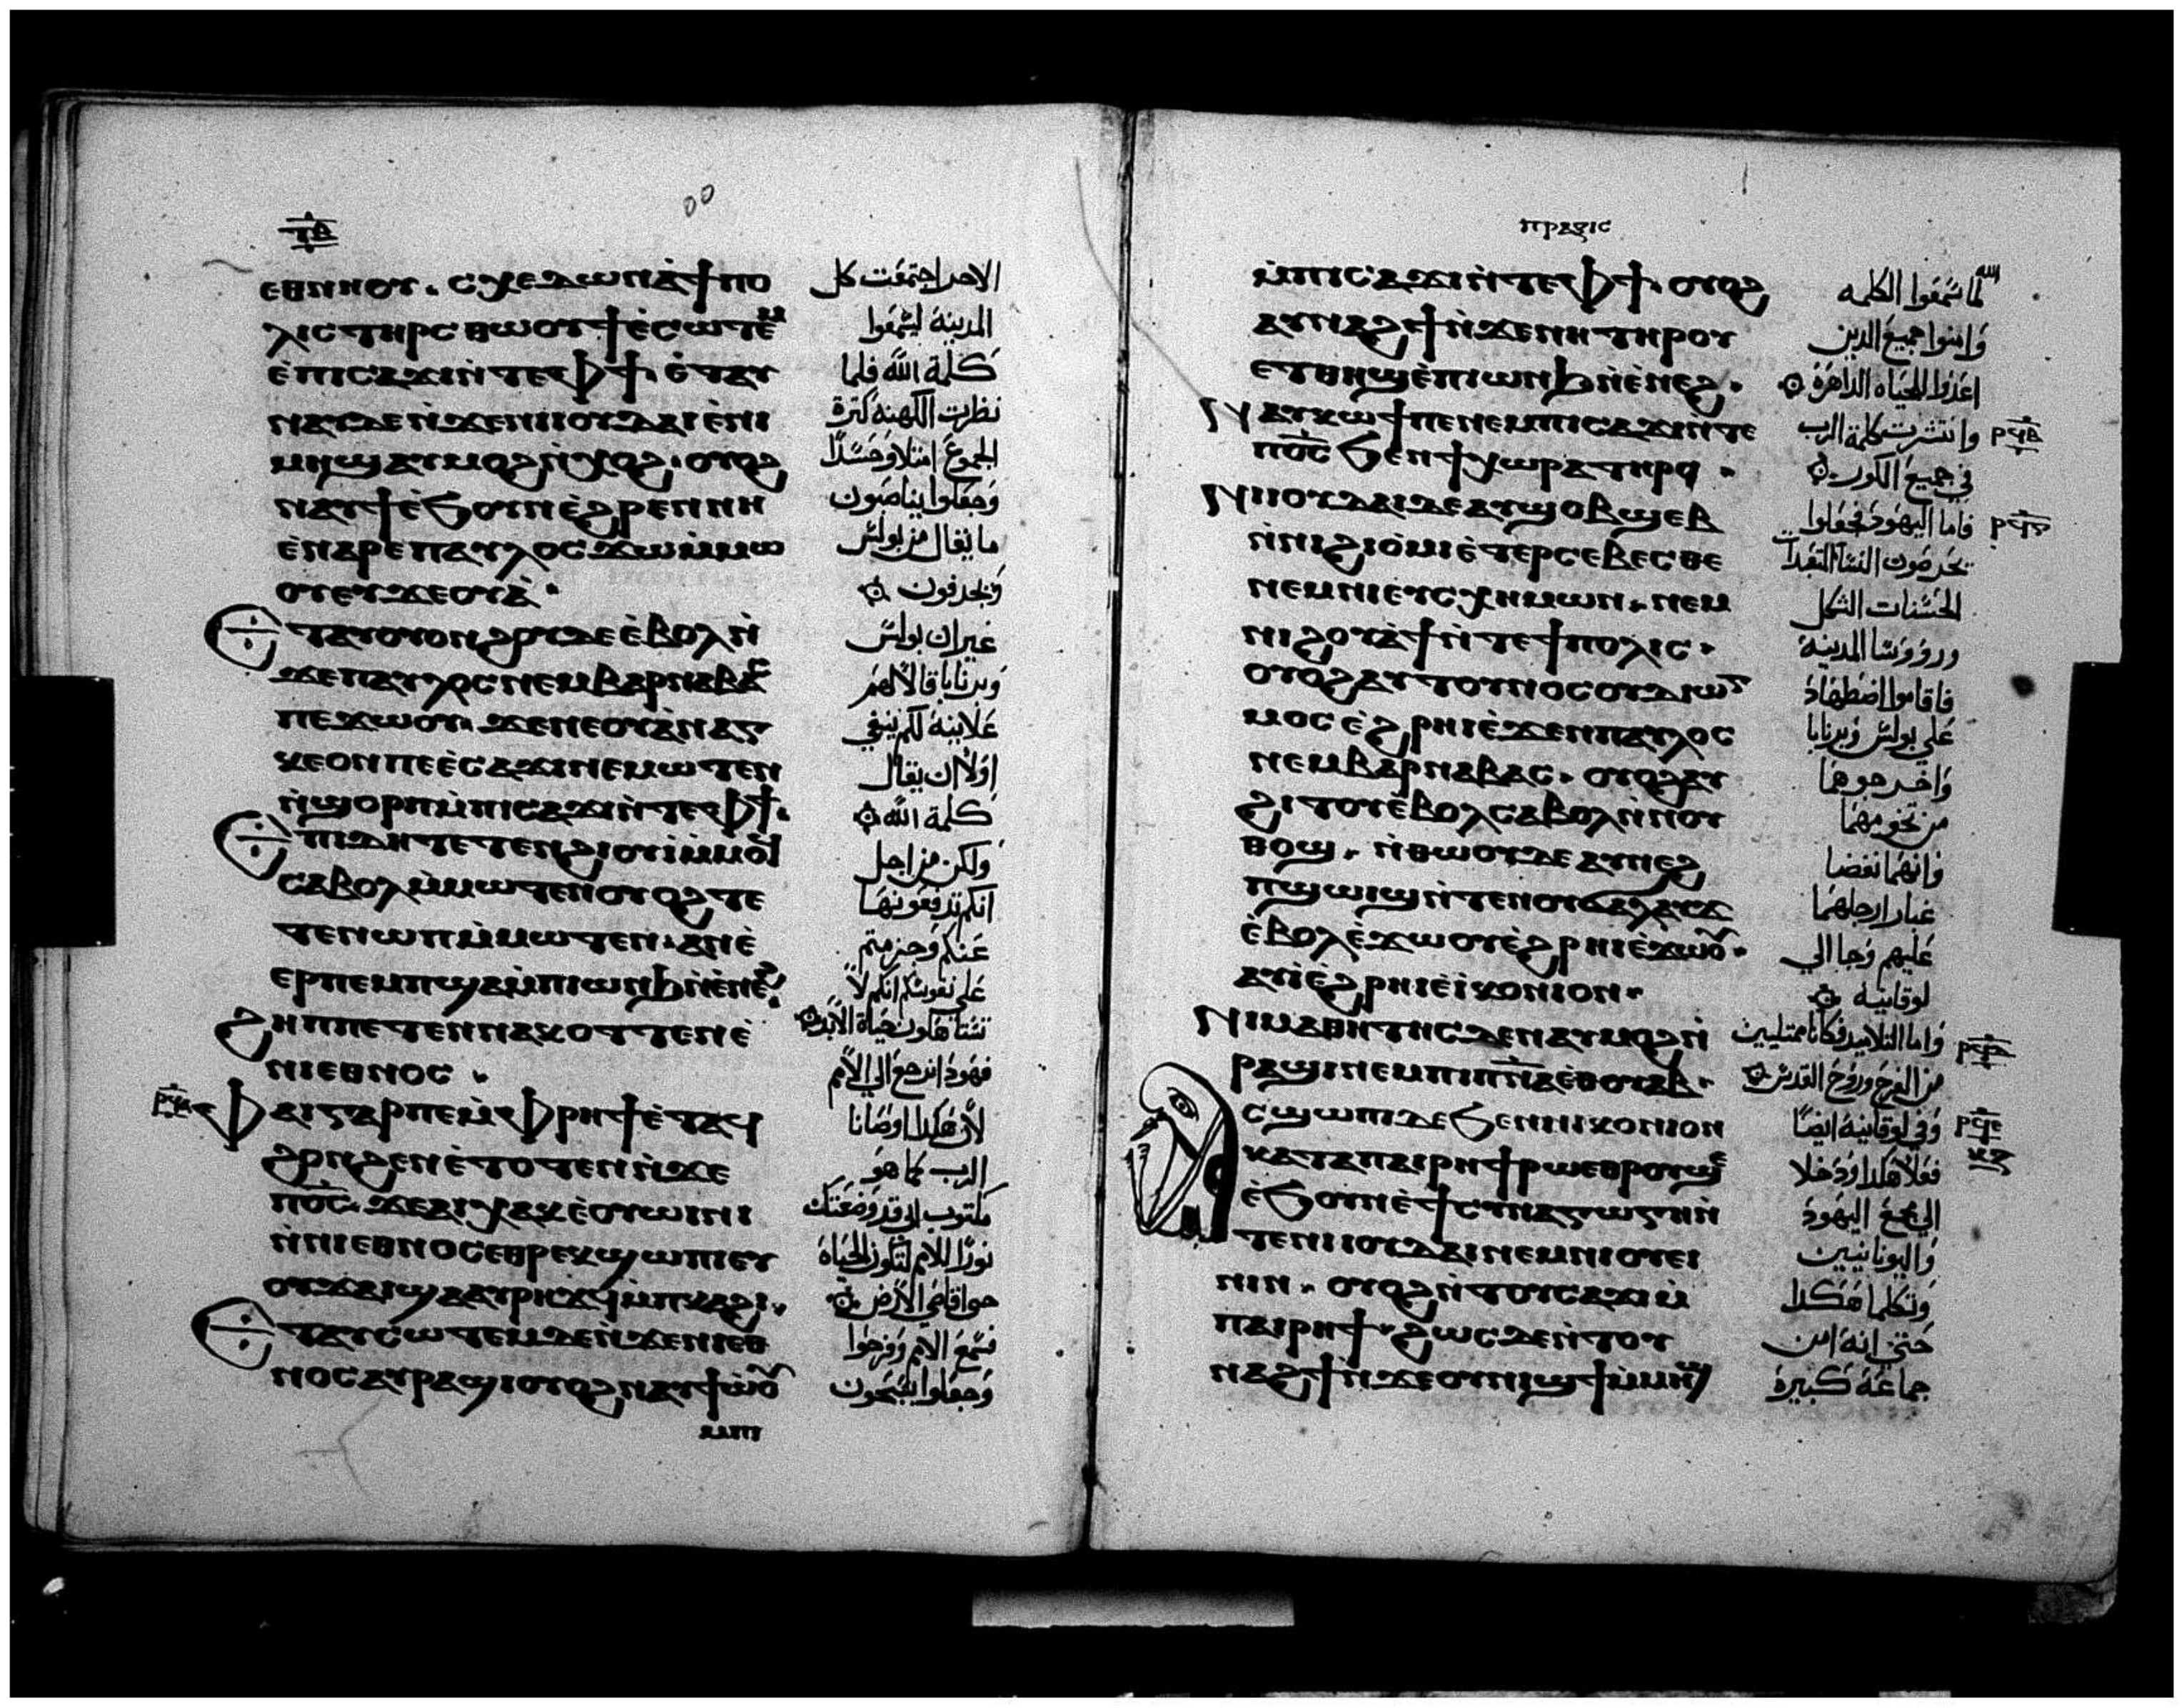 ⲉⲑⲛⲏⲟⲩ. ⲥⲭⲉⲇⲱⲛ ⲁ̀ϯⲡⲟ
ⲗⲓⲥ ⲧⲏⲣⲥ ⲑⲱⲟⲩϯ ⲉ̀ⲥⲱⲧⲉⲙ
ⲉ̀ⲡⲓⲥⲁϫⲓ ⲛ̀ⲧⲉ ⲫϯ. ⲉ̀ⲧⲁⲩ
ⲛⲁⲩ ⲇⲉ ⲛ̀ϫⲉ ⲛⲓⲓⲟⲩⲇⲁⲓ ⲉ̀ⲛⲓ
ⲙⲏϣ ⲁⲩⲙⲟϩ ⲛ̀ⲭⲟϩ. ⲟⲩⲟϩ
ⲛⲁⲩϯ ⲉ̀ϧⲟⲩⲛ ⲉ̀ϩⲣⲉⲛ ⲛⲏ
ⲉ̀ⲛⲁⲣⲉ ⲡⲁⲩⲗⲟⲥ ϫⲱ ⲙ̀ⲙⲱ
ⲟⲩ ⲉⲩϫⲉⲟⲩⲁ̀.
ⲉ̀ⲧⲁⲩⲟⲩⲟⲛϩⲟⲩ ⲇⲉ ⲉ̀ⲃⲟⲗ ⲛ̀
ϫⲉ ⲡⲁⲩⲗⲟⲥ ⲛⲉⲙ ⲃⲁⲣⲛⲁⲃⲁⲥ
ⲡⲉϫⲱⲟⲩ. ϫⲉ ⲛⲉ ⲟⲩⲁ̀ⲛⲁⲅ
ⲕⲉⲟⲛ ⲡⲉ ⲉ̀ⲥⲁϫⲓ ⲛⲉⲙⲱⲧⲉⲛ
ⲛ̀ϣⲟⲣⲡ ⲙ̀ⲡⲓⲥⲁϫⲓ ⲛ̀ⲧⲉ ⲫϯ.
ⲉ̀ⲡⲓⲇⲏ ⲧⲉⲧⲉⲛϩⲓⲟⲩⲓ̀ ⲙ̀ⲙⲟϥ
ⲥⲁⲃⲟⲗ ⲙ̀ⲙⲱⲧⲉⲛ ⲟⲩⲟϩ ⲧⲉ
ⲧⲉⲛⲱⲡ ⲙ̀ⲙⲱⲧⲉⲛ ⲁⲛ ⲉ̀
ⲉⲣⲡⲉⲙⲡϣⲁ ⲙ̀ⲡⲓⲱⲛϧ ⲛ̀ⲉ̀ⲛⲉϩ.
ϩⲏⲡⲡⲉ ⲧⲉⲛⲛⲁⲕⲟⲧⲧⲉⲛ ⲉ̀
ⲛⲓⲉⲑⲛⲟⲥ.
ⲫⲁⲓ ⲅⲁⲣ ⲡⲉ ⲙ̀ⲫⲣⲏϯ ⲉ̀ⲧⲁϥ
ϩⲟⲛϩⲉⲛ ⲉ̀ⲧⲟⲧⲉⲛ ⲛ̀ϫⲉ
ⲡⲟ̅ⲥ̅. ϫⲉ ⲁⲓⲭⲁⲕ ⲉ̀ⲟⲩⲱⲓⲛⲓ
ⲛ̀ⲛⲓⲉⲑⲛⲟⲥ ⲉⲑⲣⲉⲕϣⲱⲡⲓ ⲉⲩ
ⲟⲩϫⲁⲓ ϣⲁ ⲁⲩⲣⲏϫϥ ⲙ̀ⲡⲕⲁϩⲓ.
ⲉ̀ⲧⲁⲩⲥⲱⲧⲉⲙ ⲇⲉ ⲛ̀ϫⲉ ⲛⲓⲉⲑ
ⲛⲟⲥ ⲁⲩⲣⲁϣⲓ ⲟⲩⲟϩ ⲛⲁⲩϯⲱ̀ⲟⲩ
ⲙ̀ⲡⲓ
الاحد اجتمعت كل
المدينة ليسمعوا
كلمة الله فلما
نظرت الكهنه كثرة
الجموع امتلاو حسدًا
وجعلوا يناصبون
ما يقال من بولس
ويجدفون
غير ان بولس
وبرنابا قالا لهم
علانية لكم ينبغي
اولًا ان يقال
كلمة الله
ولكن من اجل
انكم تدفعونها
عنكم وجزمتم
على نفوسكم انكم لا
تستاهلون حياة الابد
فهوذا نرجع الي الامم
لان هكذا اوصانا
الرب كما هو
مكتوب اني قد وضعتك
نورًا للامم لتكون الحياة
حوا اقاصي الارض
فسمع الامم وفرحوا
وجعلوا يسبحون
ⲡⲣⲁⲝⲓⲥ
ⲙ̀ⲡⲓⲥⲁϫⲓ ⲛ̀ⲧⲉ ⲫϯ. ⲟⲩⲟϩ
ⲁⲩⲛⲁϩϯ ⲛ̀ϫⲉ ⲛⲏ ⲧⲏⲣⲟⲩ
ⲉⲧⲑⲏϣ ⲉ̀ⲡⲓⲱⲛϧ ⲛ̀ⲉ̀ⲛⲉϩ.
ⲛⲁⲩⲕⲱϯ ⲡⲉ ⲛⲉⲙ ⲡⲓⲥⲁϫⲓ ⲛ̀ⲧⲉ
ⲡⲟ̅ⲥ̅ ϧⲉⲛ ϯⲭⲱⲣⲁ ⲧⲏⲣⲥ.
ⲛⲓⲓⲟⲩⲇⲁⲓ ⲇⲉ ⲁⲩϣⲟⲃϣⲉⲃ
ⲛ̀ⲛⲓϩⲓⲟ̀ⲙⲓ ⲉ̀ⲧⲉⲣⲥⲉⲃⲉⲥⲑⲉ
ⲛⲉⲙ ⲛⲓⲉⲩⲥⲭⲏⲙⲱⲛ. ⲛⲉⲙ
ⲛⲓϩⲟⲩⲁ̀ϯ ⲛ̀ⲧⲉ ϯⲡⲟⲗⲓⲥ.
ⲟⲩⲟϩ ⲁⲩⲧⲟⲩⲛⲟⲥ ⲟⲩⲇⲓⲱⲅ
ⲙⲟⲥ ⲉ̀ϩⲣⲏⲓ ⲉ̀ϫⲉⲛ ⲡⲁⲩⲗⲟⲥ
ⲛⲉⲙ ⲃⲁⲣⲛⲁⲃⲁⲥ. ⲟⲩⲟϩ ⲁⲩ
ϩⲓⲧⲟⲩ ⲉ̀ⲃⲟⲗ ⲥⲁⲃⲟⲗ ⲛ̀ⲛⲟⲩ
ⲑⲟϣ. ⲛ̀ⲑⲱⲟⲩ ⲇⲉ ⲁⲩⲛⲉϩ
ⲡϣⲱⲓϣ ⲛ̀ⲧⲉ ⲛⲟⲩϭⲁⲗⲁⲩϫ
ⲉ̀ⲃⲟⲗ ⲉ̀ϫⲱⲟⲩ ⲉ̀ϩⲣⲏⲓ ⲉ̀ϫⲱⲟⲩ.
ⲁⲩⲓ̀ ⲉ̀ϩⲣⲏⲓ ⲉ̀ⲓ̈ⲕⲟⲛⲓⲟⲛ.
ⲛⲓⲙⲁⲑⲏⲧⲏⲥ ⲇⲉ ⲛⲁⲩⲙⲟϩ ⲛ̀
ⲣⲁϣⲓ ⲛⲉⲙ ⲡⲓⲡ̅ⲛ̅ⲁ̅ ⲉⲑⲟⲩⲁⲃ.
ⲁⲥϣⲱⲡⲓ ⲇⲉ ϧⲉⲛ ⲛⲓⲕⲟⲛⲓⲟⲛ
ⲕⲁⲧⲁ ⲡⲁⲓⲣⲏϯ ⲣⲱ ⲉⲑⲣⲟⲩϣⲉ
ⲉ̀ϧⲟⲩⲛ ⲉ̀ϯⲥⲩⲛⲁⲅⲱⲅⲏ ⲛ̀
ⲧⲉ ⲛⲓⲓⲟⲩⲇⲁⲓ ⲛⲉⲙ ⲛⲓⲟⲩⲉⲓ
ⲛⲓⲛ. ⲟⲩⲟϩ ⲛ̀ⲧⲟⲩⲥⲁϫⲓ ⲙ̀
ⲡⲁⲓⲣⲏϯ. ϩⲱⲥ ⲇⲉ ⲛ̀ⲧⲟⲩ
ⲛⲁϩϯ ⲛ̀ϫⲉ ⲟⲩⲛⲓϣϯ ⲙ̀ⲙⲏϣ
لما سمعوا الكلمه
وامنوا جميع الذين
اعدوا للحياه الداهرة
وانتشرت كلمة الرب
في جميع الكور
فاما اليهود فجعلوا
يحرضون النسا المتعبدات
الحسنات الشكل
ورووسا المدينة
فاقاموا اضطهاد
علي بولس وبرنابا
واخرجوهما
من تخومهما
فانهما نفضا
غبار ارجلهما
عليهم وجا الي
لوقانيه
واما التلاميد فكانا ممتليين
من الفرح وروح القدس
وفي لوقانية ايضًا
فعلا هكذا ودخلا
الي مجمع اليهود
واليونانيين
وتكلما هكذا
حتي انه امن
جماعة كبيرة